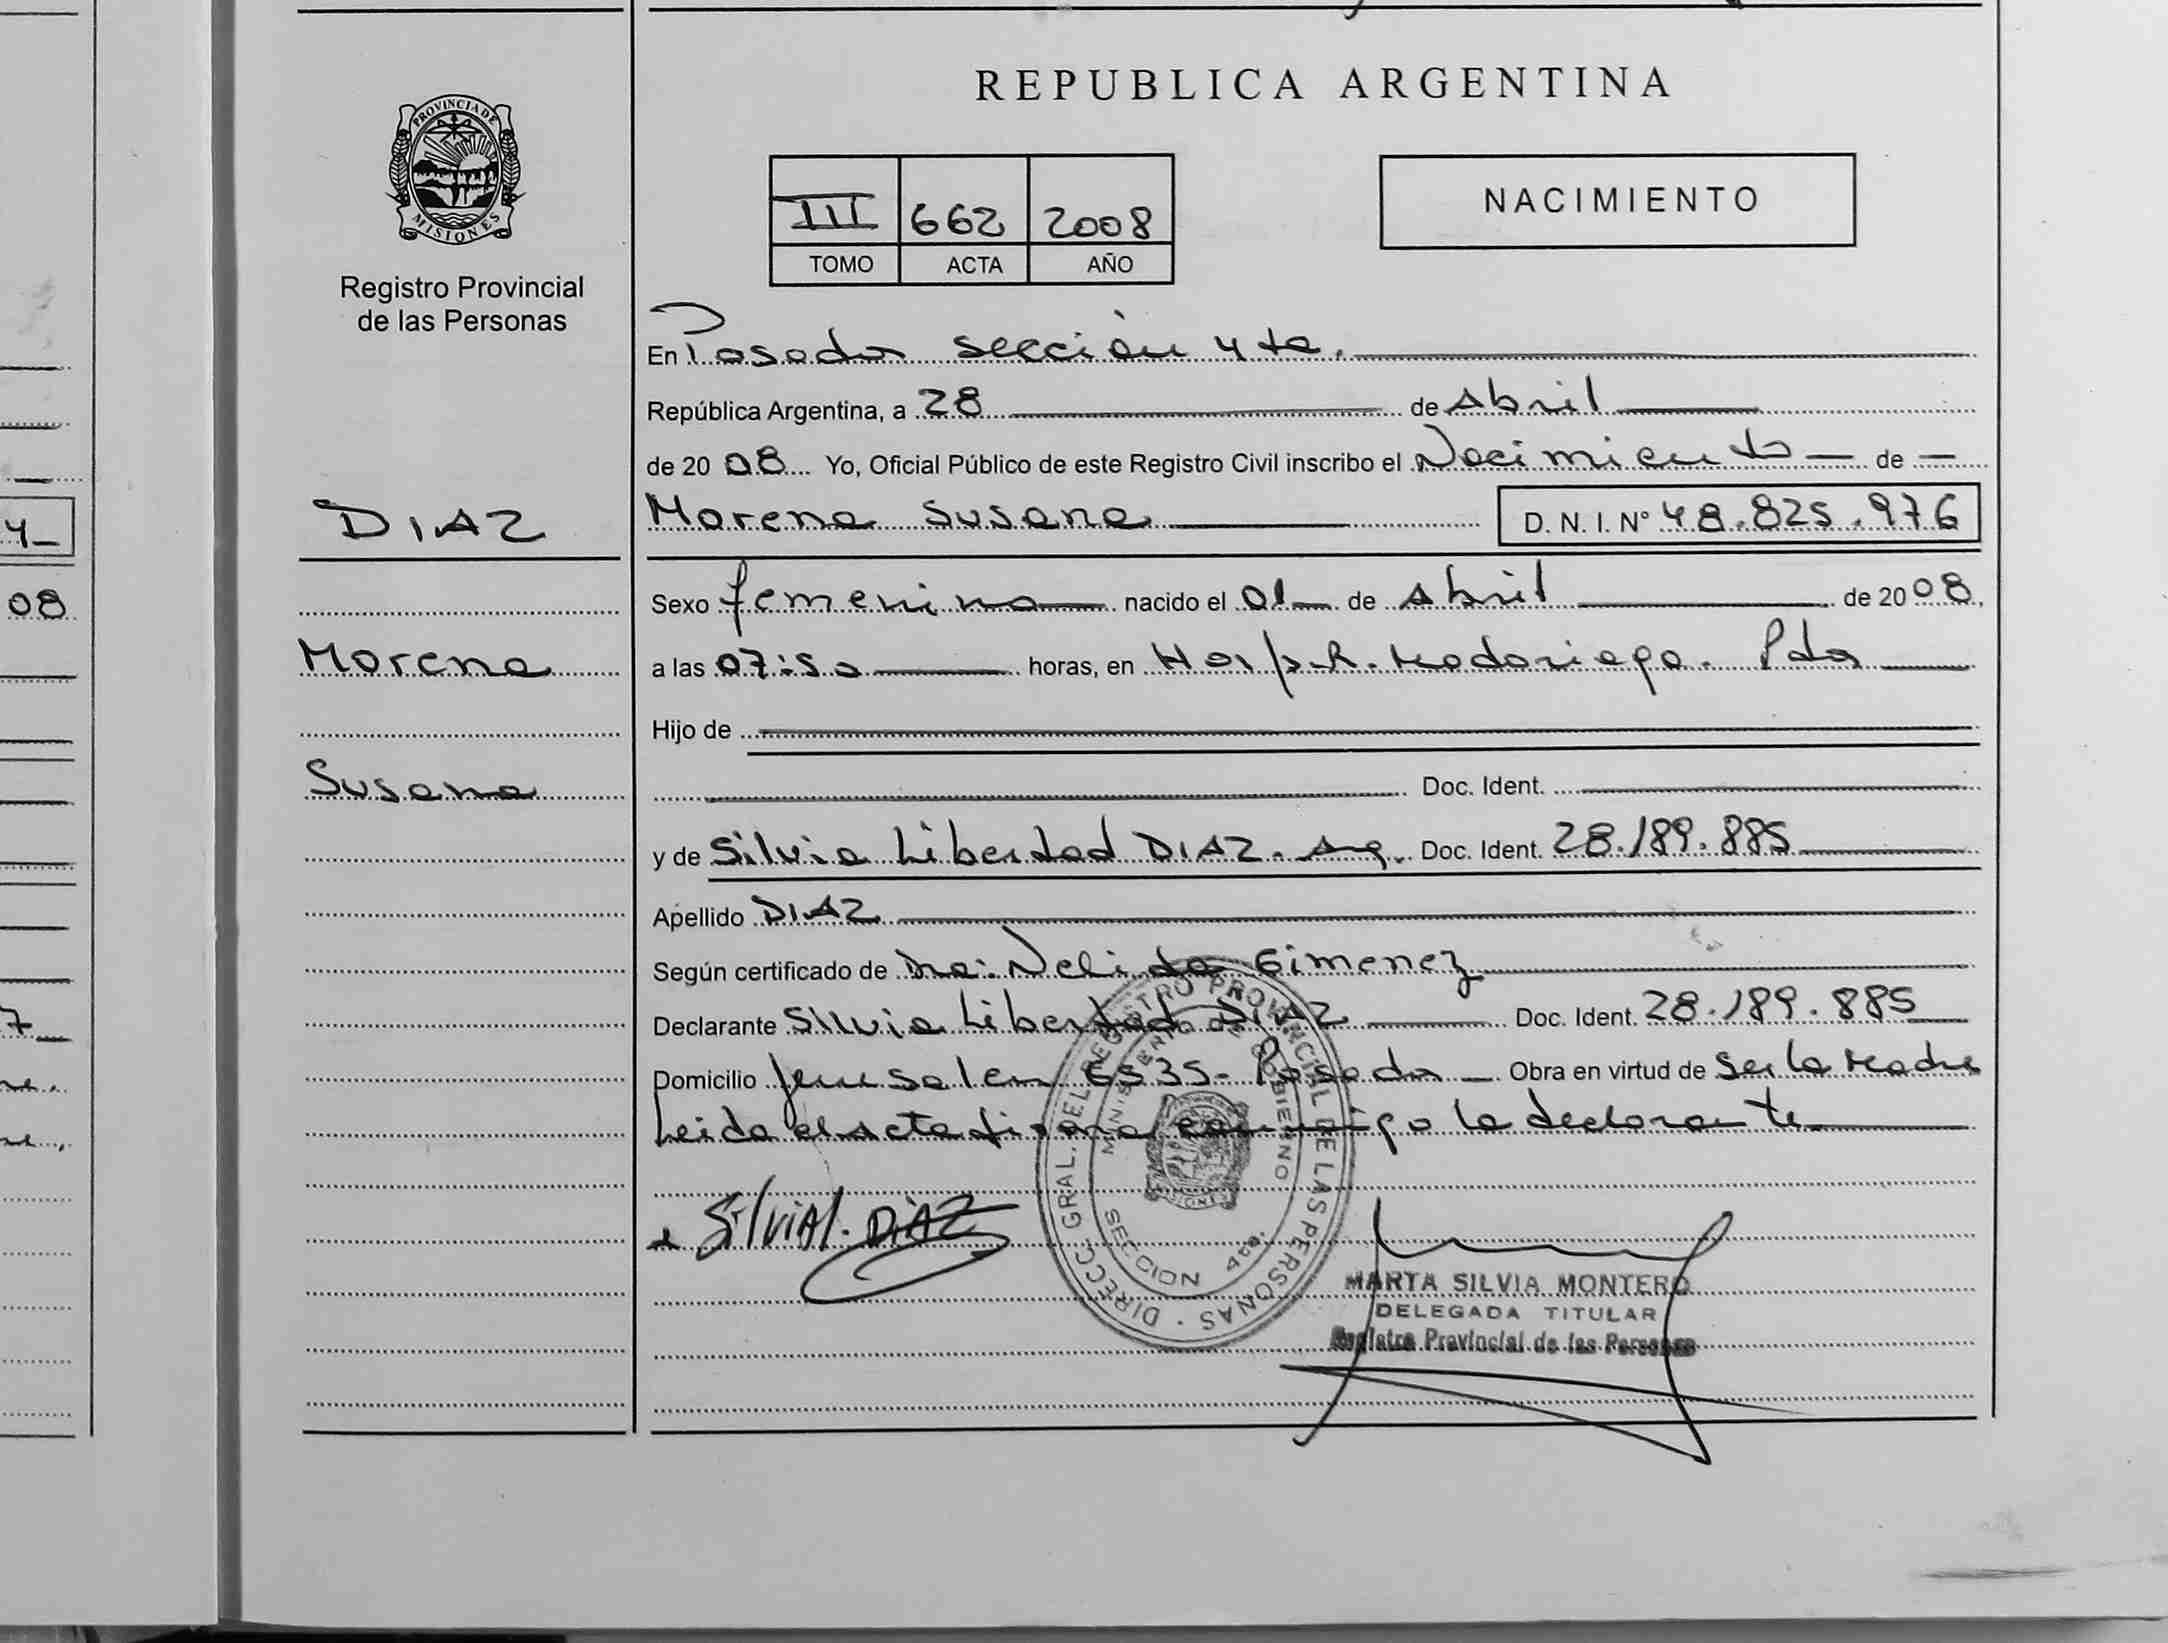 REPUBLICA ARGENTINA
PROVINCIA DE
MISIONES
Registro Provincial
de las Personas
III 662 2008
TOMO ACTA AÑO
NACIMIENTO
En Posadas sección 4ta.
República Argentina, a 28 de Abril
de 20 08 Yo, Oficial Público de este Registro Civil inscribo el Nacimiento de
DIAZ
Morena Susana D. N. I. Nº 48.825.976
Sexo femenino nacido el 01 de Abril de 20 08
Morena
a las 07:50 horas, en Hosp. R. Madariaga. Pdas
Hijo de
Susana
Doc. Ident.
y de Silvia Libertad DIAZ. Arg. Doc. Ident. 28.189.885
Apellido DIAZ
Según certificado de Dra: Nelida Gimenez
Declarante Silvia Libertad DIAZ Doc. Ident. 28.189.885
Domicilio Jerusalen 6535- Posadas Obra en virtud de Ser la Madre
Leida el acta firma conmigo la declarante
Silvia L. DIAZ
DIRECC. GRAL. DEL REGISTRO PROVINCIAL DE LAS PERSONAS
MINISTERIO DE GOBIERNO
SECCION 4ta.
MARTA SILVIA MONTERO
DELEGADA TITULAR
Registro Provincial de las Personas
4
08
7